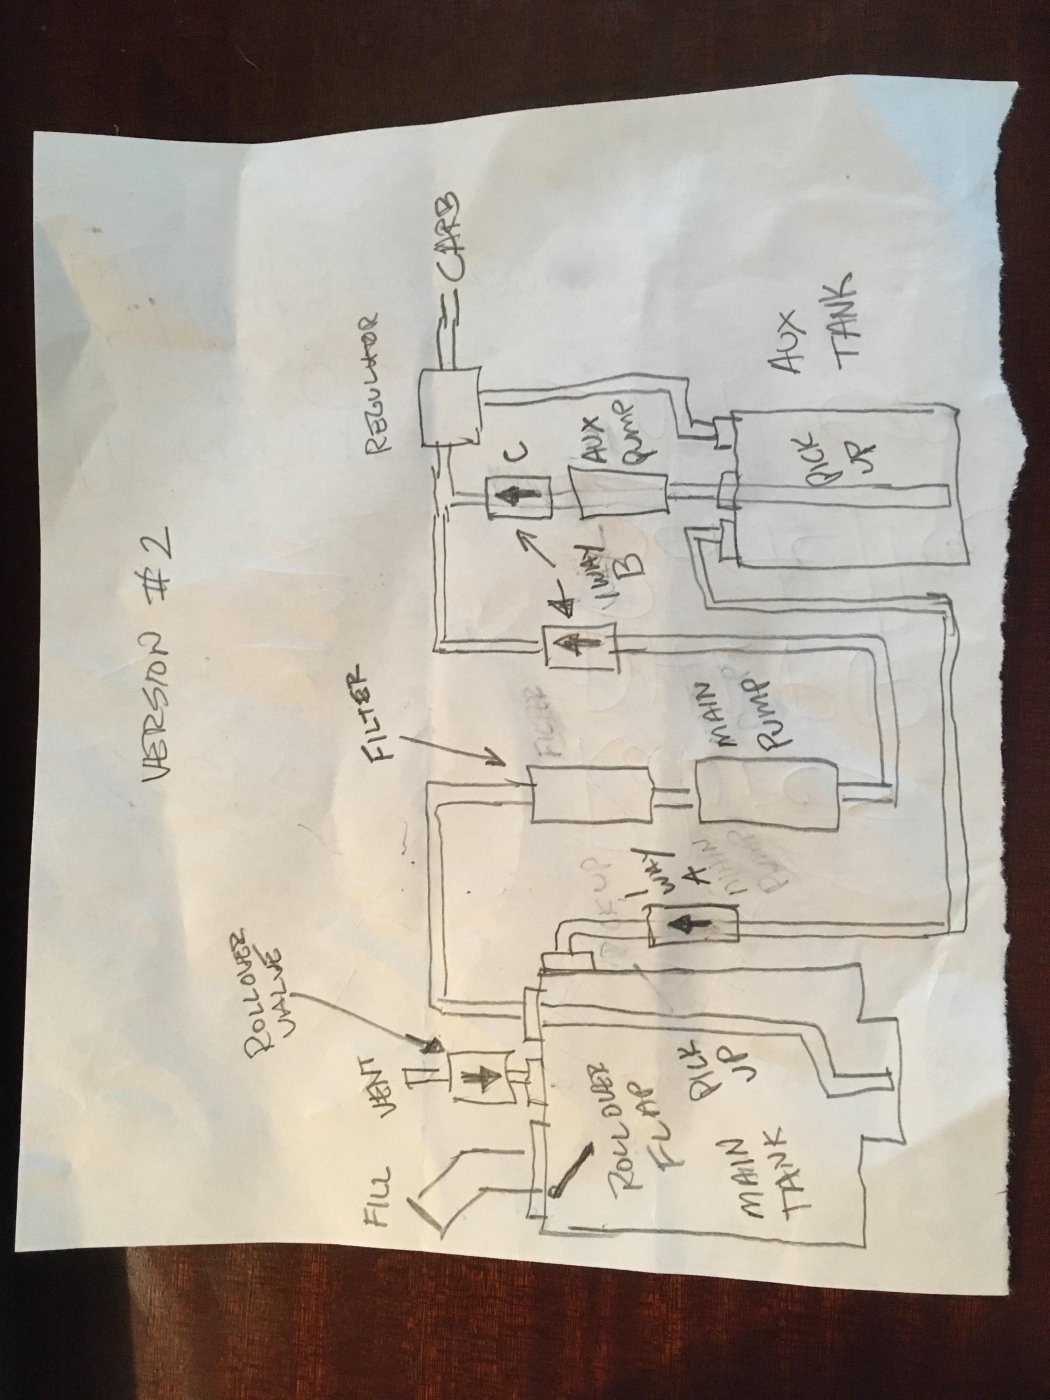 VERSION #2
ROLLOVER
VALVE
FILTER
REGULATOR
FILL
VENT
CARB
C
1 WAY
B
AUX
PUMP
FILTER
1
WAY
A
MAIN
PUMP
MAIN
PUMP
ROLLOVER
FLAP
PICK
UP
PICK
UP
MAIN
TANK
AUX
TANK